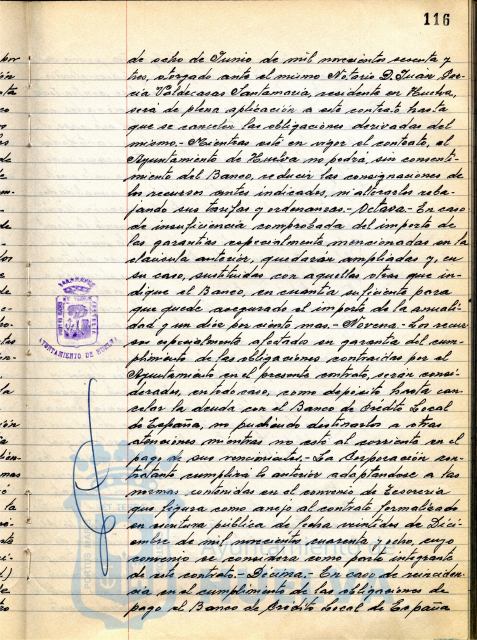 116
de ocho de Junio de mil novecientos sesenta y
tres, otorgado ante el mismo Notario D. Juan Gar-
cía Valdecasas Santamaría, residente en Huelva,
será de plena aplicación a este contrato hasta
que se cancelen las obligaciones derivadas del
mismo.- Mientras esté en vigor el contrato, el
Ayuntamiento de Huelva no podrá, sin consenti-
miento del Banco, reducir las consignaciones de
los recursos antes indicados, ni alterarlos reba-
jando sus tarifas y ordenanzas.- Octava.- En caso
de insuficiencia comprobada del importe de
las garantías especialmente mencionadas en la
cláusula anterior, quedarán ampliadas y, en
su caso, sustituidas con aquellas otras que in-
dique el Banco, en cuantía suficiente para
que quede asegurado el importe de la anuali-
dad y un diez por ciento mas.- Novena.- Los recur-
sos especialmente afectados en garantía del cum-
plimiento de las obligaciones contraidas por el
Ayuntamiento en el presente contrato, serán consi-
derados, en todo caso, como depósito hasta can-
celar la deuda con el Banco de Crédito Local
de España, no pudiendo destinarlos a otras
atenciones mientras no esté al corriente en el
pago de sus vencimientos.- La Corporación con-
tratante cumplirá lo anterior adaptandose a las
normas contenidas en el convenio de Tesorería
que figura como anejo al contrato formalizado
en escritura pública de fecha veintidos de Dici-
embre de mil novecientos cuarenta y ocho, cuyo
convenio se considera como parte integrante
de este contrato.- Décima. En caso de reinciden-
cia en el cumplimiento de las obligaciones de
pago el Banco de Crédito Local de España
AYUNTAMIENTO DE HUELVA
Ayuntamiento de